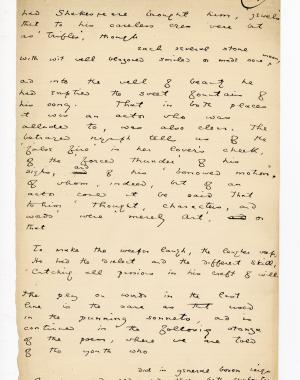 had Shakespeare brought him, jewels
that to his careless eyes were at
as 'trifles', though
each several stone
With wit well blazoned smiled or made some moan,
and into the well of beauty he
had emptied the sweet fountain of
his song. That in both places
it was an actor who was
alluded to, was also clear. The
betrayed nymph tells us of the
'false fire' in her lover's cheek,
of the 'forced thunder' of his
sighs, and of his 'borrowed motion':
of whom, indeed, but of an
actor could it be said that
to him 'thought, characters, and
words' were 'merely Art', or
that
To make the weeper laugh, the laugher weep,
He had the dialect and the different skill,
Catching all passions in his craft of will
The play on words in the last
line is the same as that used
in the punning sonnets, and is
continued in the following stanza
of the poem, where we are told
of the youth who
did in general bosom reign